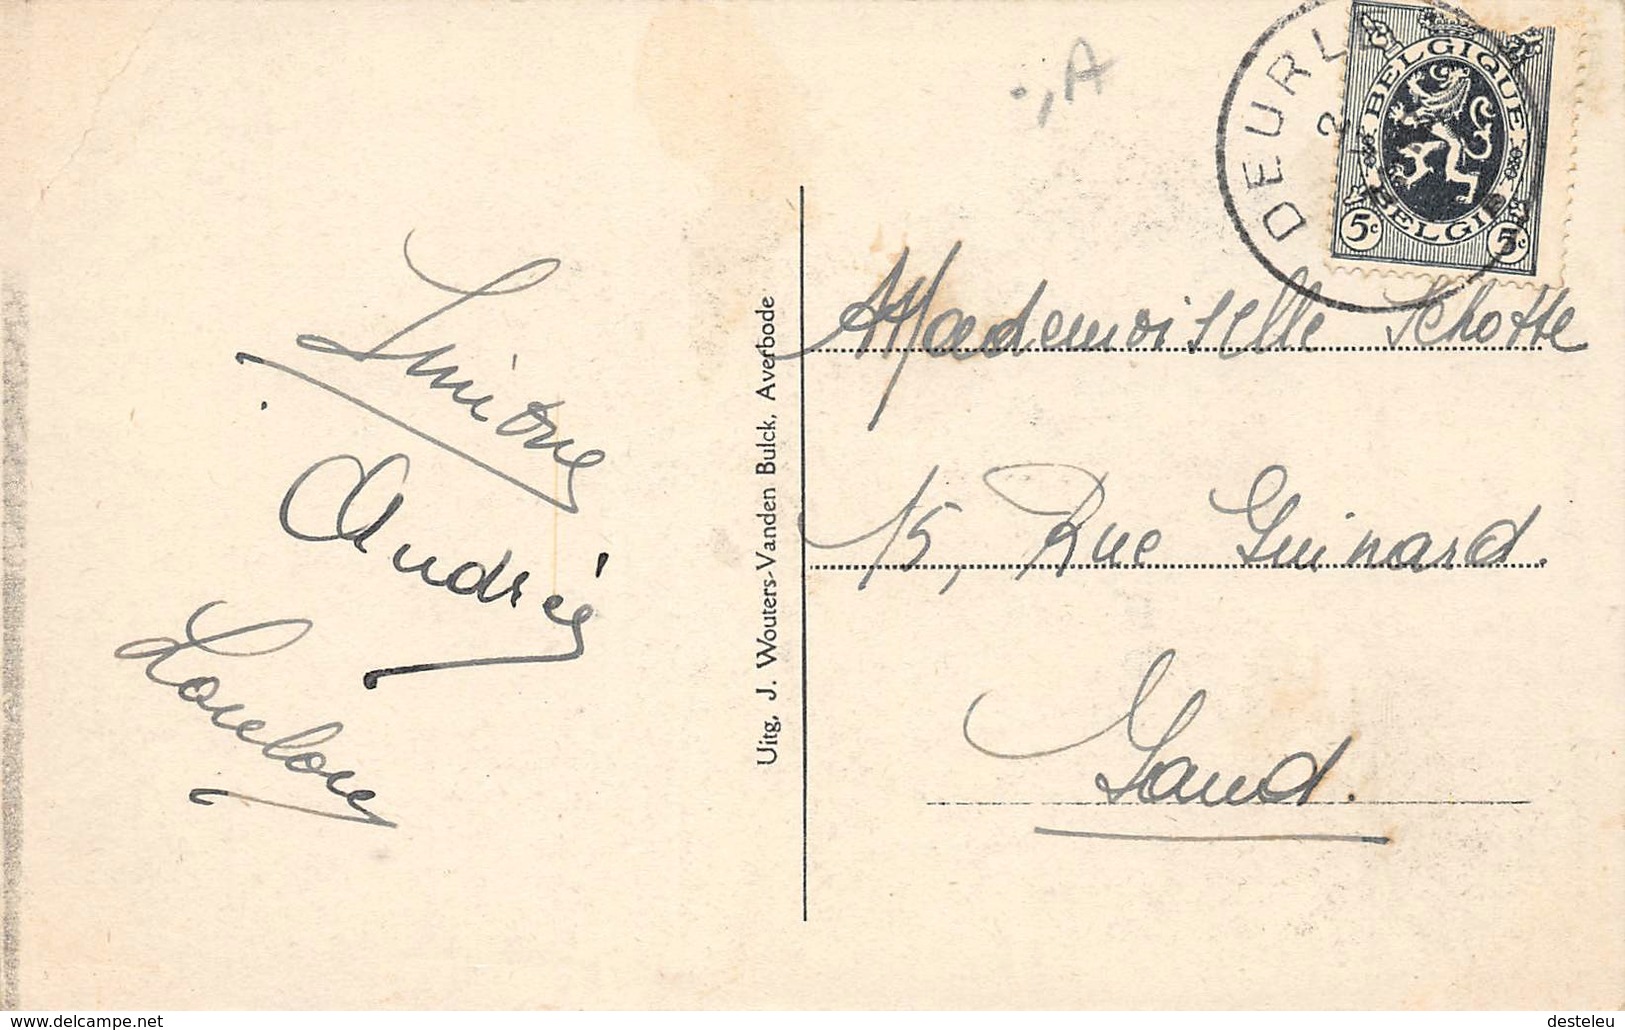 ,A
DEURL
2
BELGIQUE
BELGIË
5c 5c
Simone
Andrée
Loulou
Uitg, J. Wouters-Vanden Bulck, Averbode
Mademoiselle Schotte
15, Rue Guinard.
Gand.
www.delcampe.net
desteleu